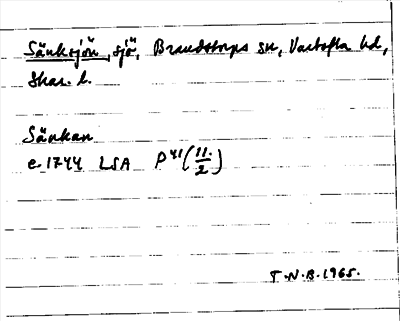 Sänksjön, sjö, Brandstorps sn, Vartofta hd,
Skar. l.
Sänkan
e. 1744 LSA P41(11/2)
T.N.B. 1965.